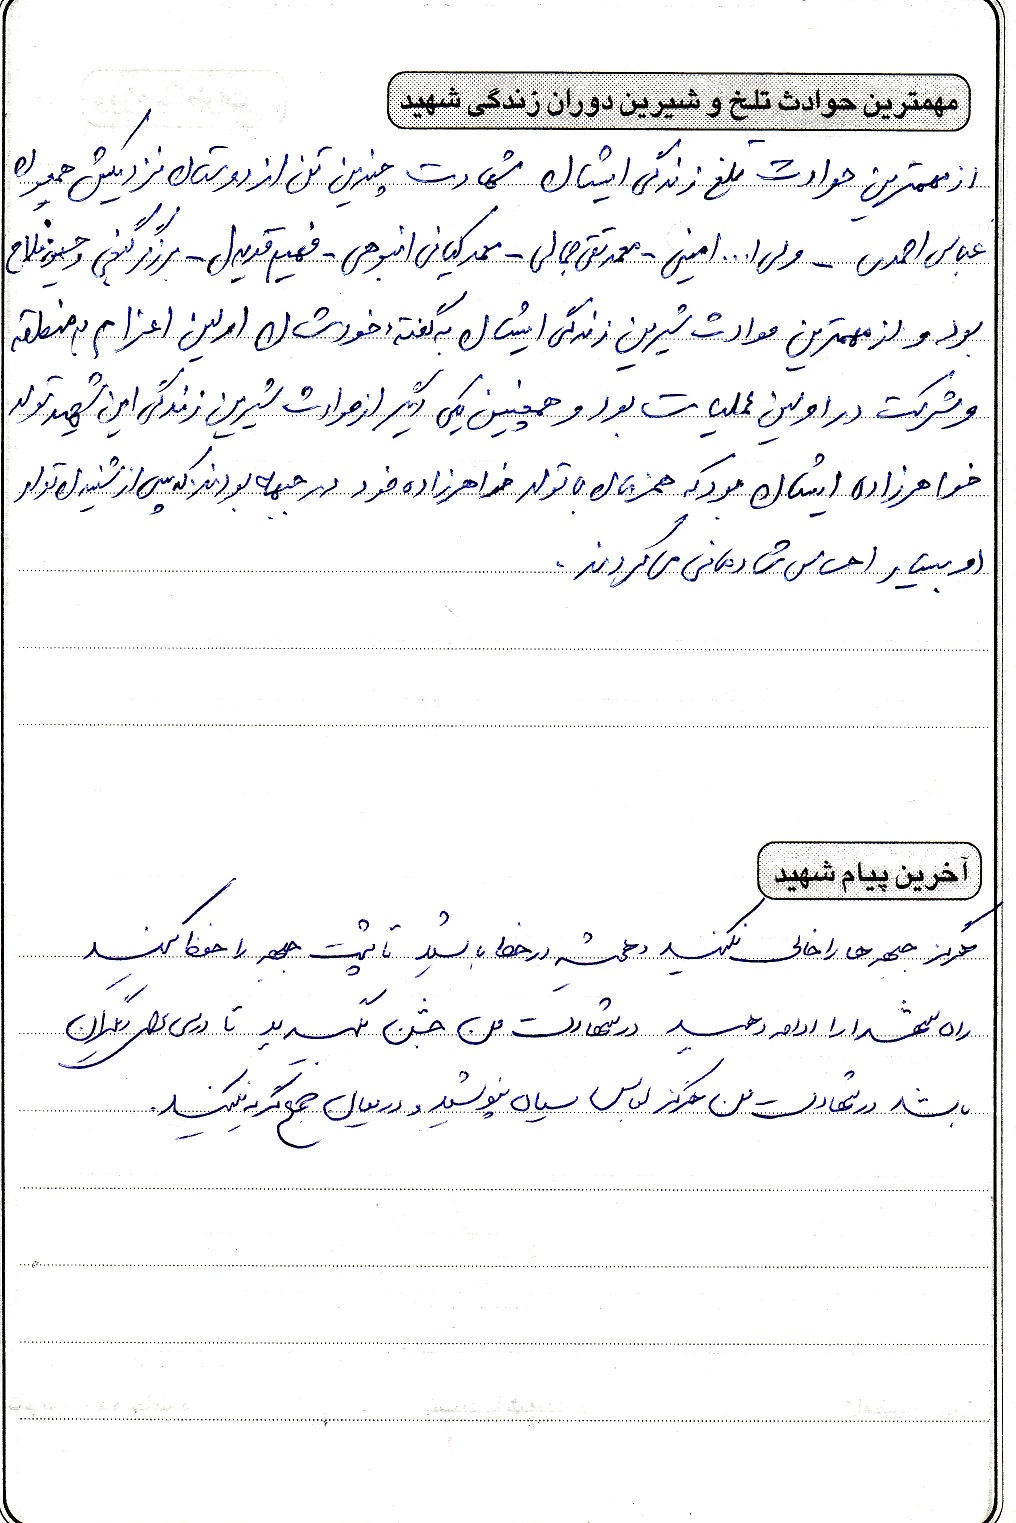 مهمترین حوادث تلخ و شیرین دوران زندگی شهید
از مهمترین حوادث تلخ زندگی ایشان شهادت چندین تن از دوستان نزدیکش همچون
عباس احمدی – ولی ا... امینی – محمد تقی جمالی – محمد کیانی انبوهی – فهیم قدیمی – برزگر گنجی و حسین فلاح
بود و از مهمترین حوادث شیرین زندگی ایشان به گفته خودشان اولین اعزام به منطقه
و شرکت در اولین عملیات بود و همچنین یکی دیگر از حوادث شیرین زندگی این شهید تولد
خواهرزاده ایشان بود که همزمان با تولد خواهرزاده خود در جبهه بودند که پس از شنیدن تولد
او بسیار احساس شادمانی می کردند .
آخرین پیام شهید
هرگز جبهه ها را خالی نکنید و همیشه در خط باشید تا پشت جبهه را حفظ کنید
راه شهدا را ادامه دهید در شهادت من جشن بگیرید تا درسی برای دیگران
باشد در شهادت من هرگز لباس سیاه نپوشید و در میان جمع گریه نکنید .